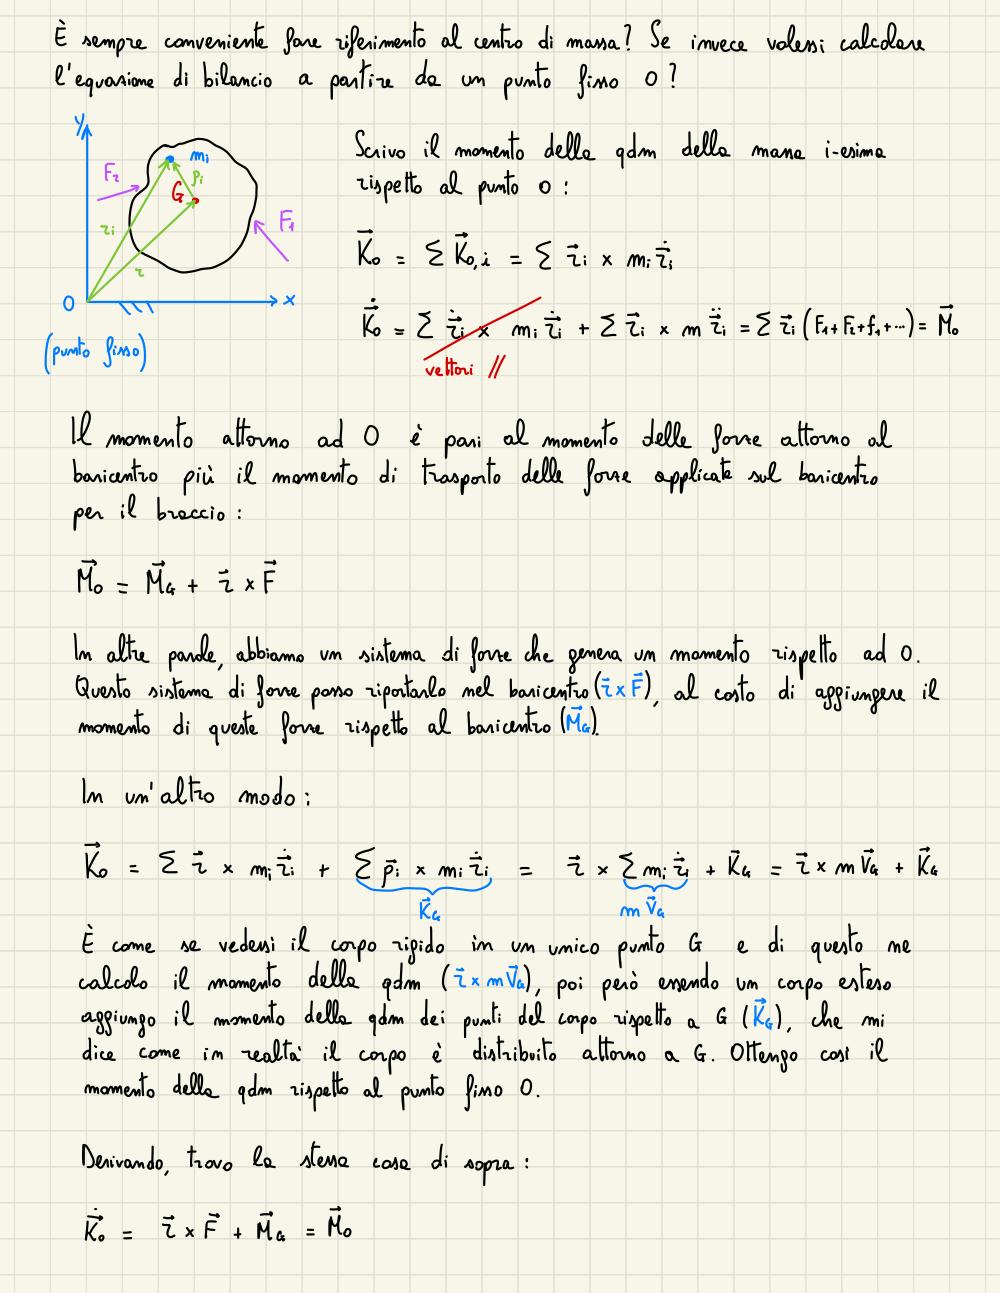 È sempre conveniente fare riferimento al centro di massa? Se invece volessi calcolare
l'equazione di bilancio a partire da un punto fisso O?
y
m_i
F₂
ρ_i
G
r_i
F₁
r
O
x
(punto fisso)
Scrivo il momento della qdm della massa i-esima
rispetto al punto O:
K⃗_O = Σ K⃗_O,i = Σ r⃗_i × m_i ṙ⃗_i
K̇⃗_O = Σ ṙ⃗_i × m_i ṙ⃗_i + Σ r⃗_i × m r̈⃗_i = Σ r⃗_i (F₁+F₂+f₁+...) = M⃗_O
vettori //
Il momento attorno ad O è pari al momento delle forze attorno al
baricentro più il momento di trasporto delle forze applicate sul baricentro
per il braccio:
M⃗_O = M⃗_G + r⃗ × F⃗
In altre parole, abbiamo un sistema di forze che genera un momento rispetto ad O.
Questo sistema di forze posso riportarlo nel baricentro (r⃗ × F⃗), al costo di aggiungere il
momento di queste forze rispetto al baricentro (M⃗_G).
In un'altro modo:
K⃗_O = Σ r⃗ × m_i ṙ⃗_i + Σ ρ⃗_i × m_i ṙ⃗_i = r⃗ × Σ m_i ṙ⃗_i + K⃗_G = r⃗ × m V⃗_G + K⃗_G
K⃗_G
m V⃗_G
È come se vedessi il corpo rigido in un unico punto G e di questo ne
calcolo il momento della qdm (r⃗ × m V⃗_G), poi però essendo un corpo esteso
aggiungo il momento della qdm dei punti del corpo rispetto a G (K⃗_G), che mi
dice come in realtà il corpo è distribuito attorno a G. Ottengo così il
momento della qdm rispetto al punto fisso O.
Derivando, trovo la stessa cosa di sopra:
K̇⃗_O = r⃗ × F⃗ + M⃗_G = M⃗_O